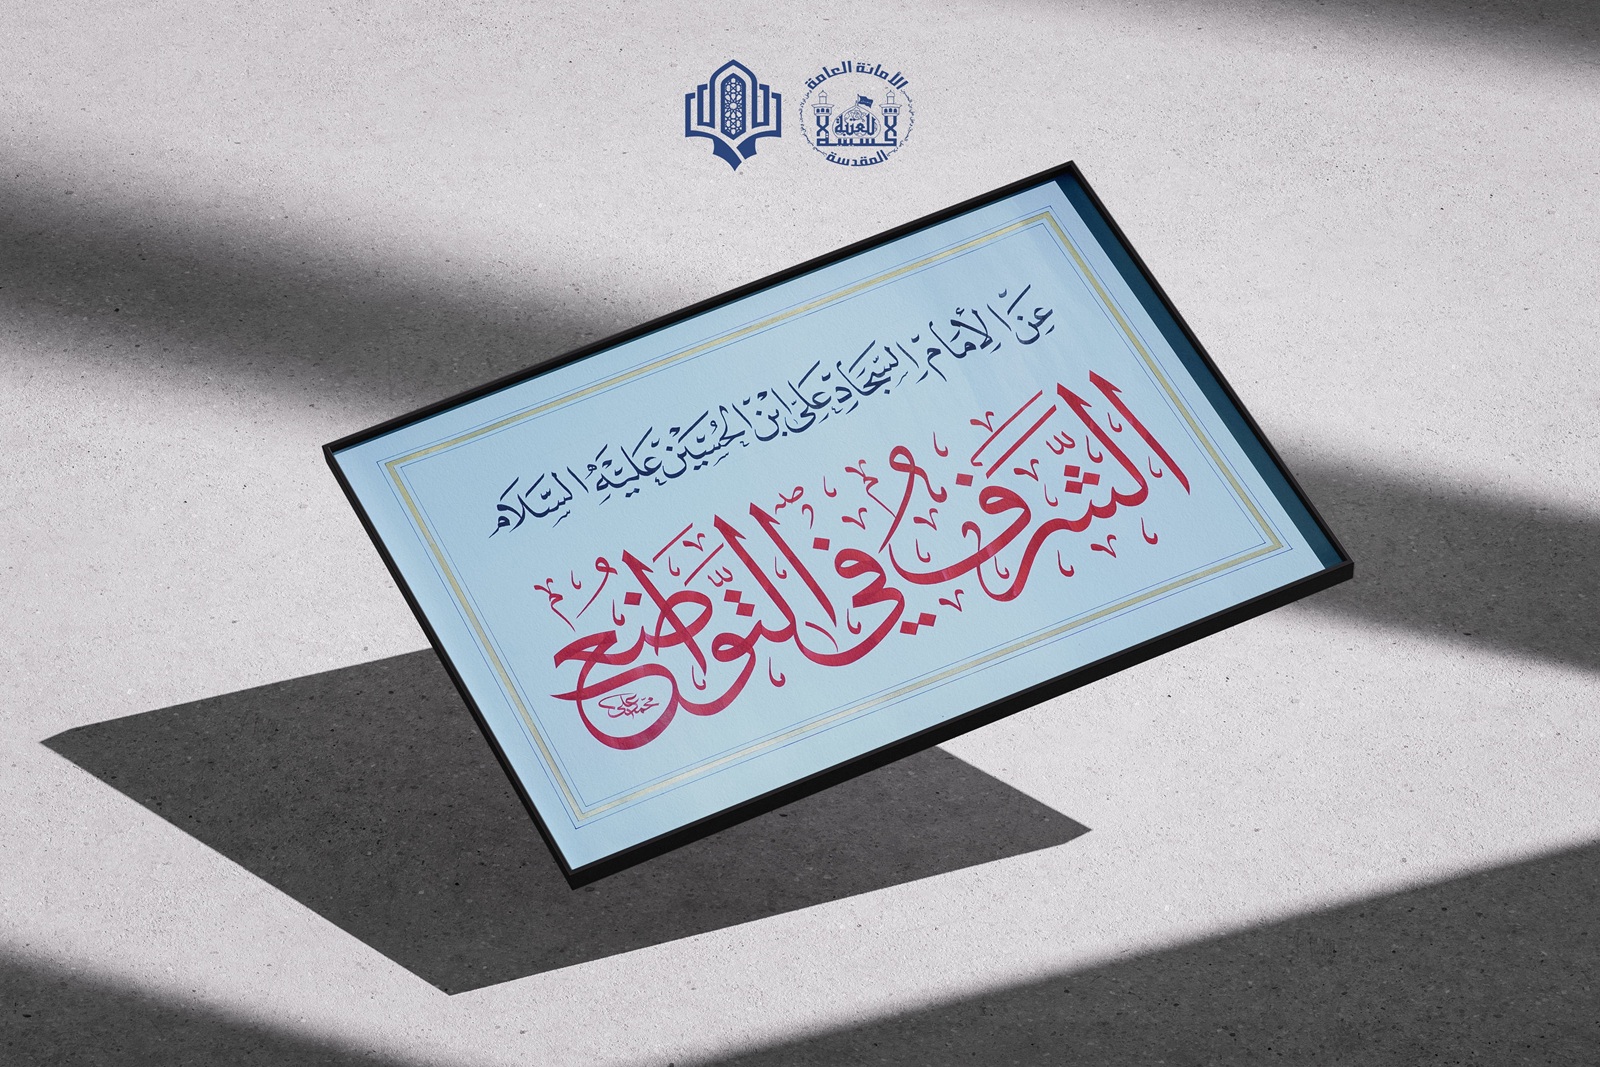 الأمانة العامة
للعتبة
الحسينية
المقدسة
عَنِ الإِمَامِ السَّجَّادِ عَلِيِّ ابْنِ الْحُسَيْنِ عَلَيْهِ السَّلَام
الشَّرَفُ فِي التَّوَاضُعِ
محمد علي